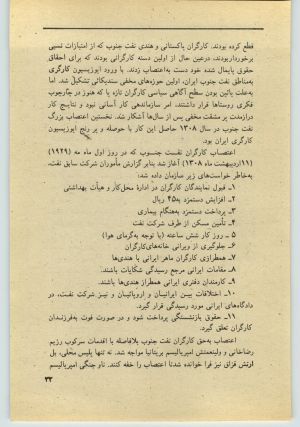 قطع کرده بودند. کارگران پاکستانی و هندی نفت جنوب که از امتیازات نسبی
برخوردار بودند، درعین حال از اولین دسته کارگرانی بودند که برای احقاق
حقوق پایمال شده خود دست به اعتصاب زدند. با ورود اپوزیسیون کارگری
به مناطق نفت جنوب ایران، اولین حوزه‌های مخفی سندیکائی تشکیل شد. اما
به علت پائین بودن سطح آگاهی سیاسی کارگران تازه پا که هنوز در چارچوب
فکری روستاها قرار داشتند، امر سازماندهی کار آسانی نبود و نتایج کار
درازمدت پر مشقت مخفی پس از سال‌ها آشکار شد. نخستین اعتصاب بزرگ
نفت جنوب در سال ۱۳۰۸ حاصل این کار با حوصله و پر رنج اپوزیسیون
کارگری ایران بود.
اعتصاب کارگران نفت جنسوب که در روز اول ماه مه (۱۹۲۹)
(۱۱ اردیبهشت ماه ۱۳۰۸) آغاز شد بنابر گزارش مأموران شرکت سابق نفت،
به خاطر خواست‌های زیر سازمان داده شد:
۱ـ قبول نمایندگان کارگران در ادارهٔ محل کار و هیأت بهداشتی
۲ـ افزایش دستمزد به ۴۵ ریال
۳ـ پرداخت دستمزد به هنگام بیماری
۴ـ تأمین مسکن از طرف شرکت نفت
۵ـ روز کار شش ساعته (با توجه به گرمای هوا)
۶ـ جلوگیری از ویرانی خانه‌های کارگران
۷ـ همطرازی کارگران ماهر ایرانی با هندی‌ها
۸ـ مقامات ایرانی مرجع رسیدگی شکایات باشند.
۹ـ کارمندان دفتری ایرانی همطراز هندی‌ها باشند.
۱۰ـ اختلافات بین ایرانیان و اروپائیان و نیز شرکت نفت، در
دادگاه‌های ایرانی مورد رسیدگی قرار گیرد.
۱۱ـ حقوق بازنشستگی پرداخت شود و در صورت فوت به فرزندان
کارگران تعلق گیرد.
اعتصاب به حق کارگران نفت جنوب بلافاصله با اقدامات سرکوب رژیم
رضاخانی و ولینعمتش امپریالیسم بریتانیا مواجه شد. نه تنها پلیس محلی، بل
ارتش قزاق نیز فرا خوانده شد تا اعتصاب را خفه کنند. ناو جنگی امپریالیسم
۳۳